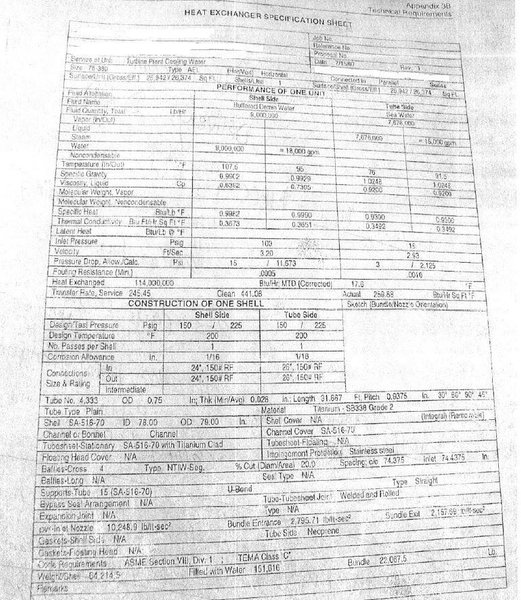 Appendix 3B
Technical Requirements
HEAT EXCHANGER SPECIFICATION SHEET
Job No.
Reference No.
Proposal No.
Date Rev. 1
Service of Unit Turbine Plant Cooling Water
Size 78-380 Type AEL (Hor/Vert) Horizontal Connected In Parallel Series
Surface/Unit (Gross/Eff.) 26,942 / 26,374 Sq Ft. Shells/Unit Surface/Shell (Gross/Eff.) 26,942 / 26,374 Sq Ft.
PERFORMANCE OF ONE UNIT
Fluid Allocation Shell Side Tube Side
Fluid Name Buffered Demin Water Sea Water
Fluid Quantity, Total Lb/Hr 9,000,000 7,676,000
Vapor (In/Out)
Liquid
Steam 7,676,000 = 15,000 gpm
Water 9,000,000 = 18,000 gpm
Noncondensable
Temperature (In/Out) °F 107.6 95 76 91.6
Specific Gravity 0.9902 0.9929 1.0248 1.0248
Viscosity, Liquid Cp 0.6382 0.7305 0.9200 0.9200
Molecular Weight, Vapor
Molecular Weight, Noncondensable
Specific Heat Btu/Lb °F 0.9982 0.9990 0.9300 0.9300
Thermal Conductivity Btu Ft/Hr Sq Ft °F 0.3673 0.3651 0.3492 0.3492
Latent Heat Btu/Lb @ °F
Inlet Pressure Psig 103 19
Velocity Ft/Sec 3.20 2.93
Pressure Drop, Allow./Calc. Psi 15 / 11.673 3 / 2.125
Fouling Resistance (Min.) .0005 .0016
Heat Exchanged 114,000,000 Btu/Hr; MTD (Corrected) 17.6 °F
Transfer Rate, Service 245.45 Clean 441.08 Actual Btu/Hr Sq Ft °F
CONSTRUCTION OF ONE SHELL Sketch (Bundle/Nozzle Orientation)
Shell Side Tube Side
Design/Test Pressure Psig 150 / 225 150 / 225
Design Temperature °F 200 200
No. Passes per Shell 1 1
Corrosion Allowance In. 1/16 1/16
Connections Size & Rating In 24", 150# RF 26", 150# RF
Out 24", 150# RF 26", 150# RF
Intermediate
Tube No. 4,333 OD 0.75 In; Thk (Min/Avg) 0.028 In; Length 31.667 Ft; Pitch 0.9375 In. 30° 60° 90° 45°
Tube Type Plain Material Titanium - SB338 Grade 2
Shell SA-516-70 ID 78.00 OD 79.00 In. Shell Cover N/A (Integral) (Removable)
Channel or Bonnet Channel Channel Cover SA-516-70
Tubesheet-Stationary SA-516-70 with Titanium Clad Tubesheet-Floating N/A
Floating Head Cover N/A Impingement Protection Stainless steel
Baffles-Cross 4 Type NTIW-Seg. % Cut (Diam/Area) 20.0 Spacing: c/c 74.375 Inlet 74.4375 In.
Baffles-Long N/A Seal Type N/A
Supports-Tube 15 (SA-516-70) U-Bend Type Straight
Bypass Seal Arrangement N/A Tube-Tubesheet Joint Welded and Rolled
Expansion Joint N/A Type N/A
ρv²-Inlet Nozzle 10,248.9 lb/ft-sec² Bundle Entrance 2,795.71 lb/ft-sec² Bundle Exit 2,157.69 lb/ft-sec²
Gaskets-Shell Side N/A Tube Side Neoprene
Gaskets-Floating Head N/A
Code Requirements ASME Section VIII, Div. 1 TEMA Class "C"
Weight/Shell 64,214.5 Filled with Water 151,016 Bundle 22,087.5 Lb.
Remarks